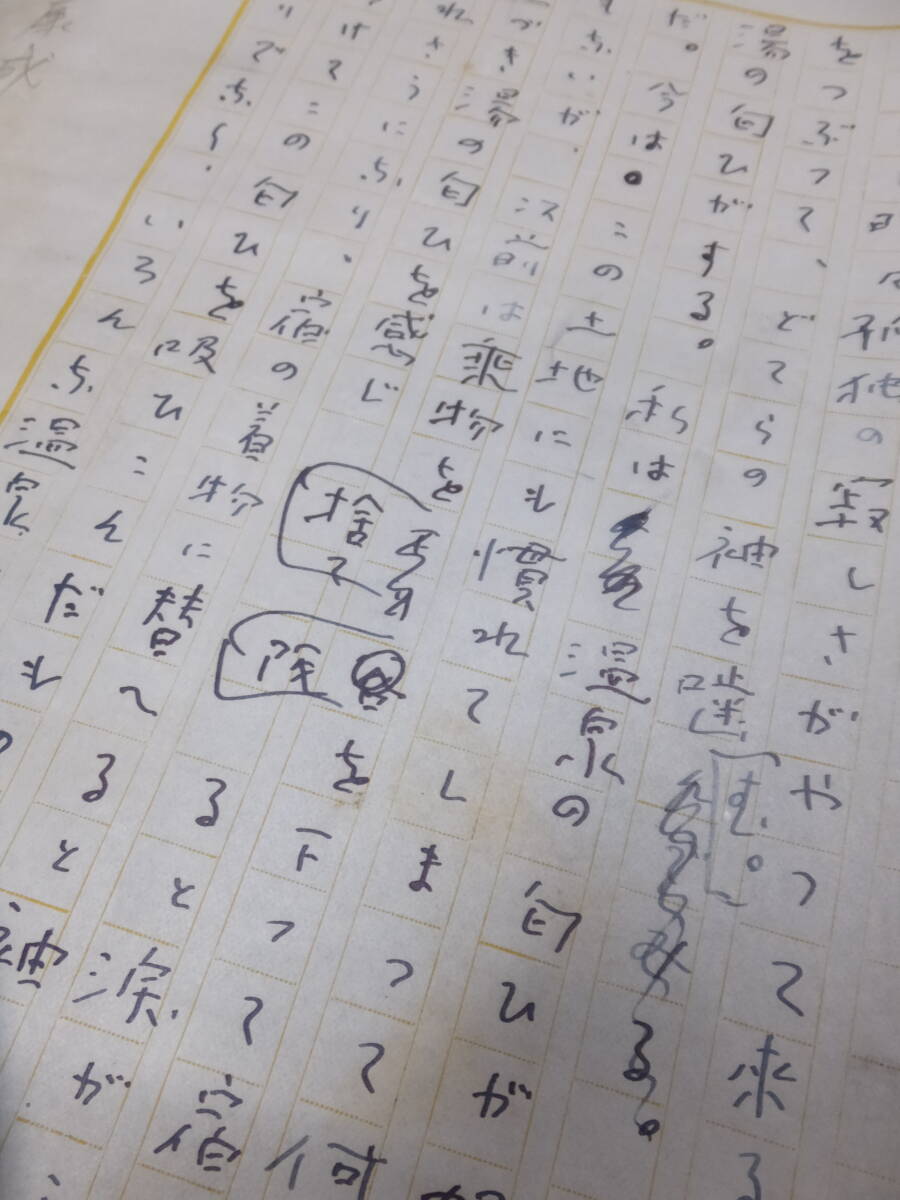 寂しさがやつて来る
をつぶつて、どてらの袖を噛む。
湯の匂ひがする。私は温泉の匂ひが
だ。今は。この土地にも慣れてしまつて何
ないが、以前は乗物を捨てを下つて宿
づき湯の匂ひを感じ降ると涙が
れさうになり、宿の着物に替へると袖
けてこの匂ひを吸ひこんだも
りでなく、いろんな温泉
康成